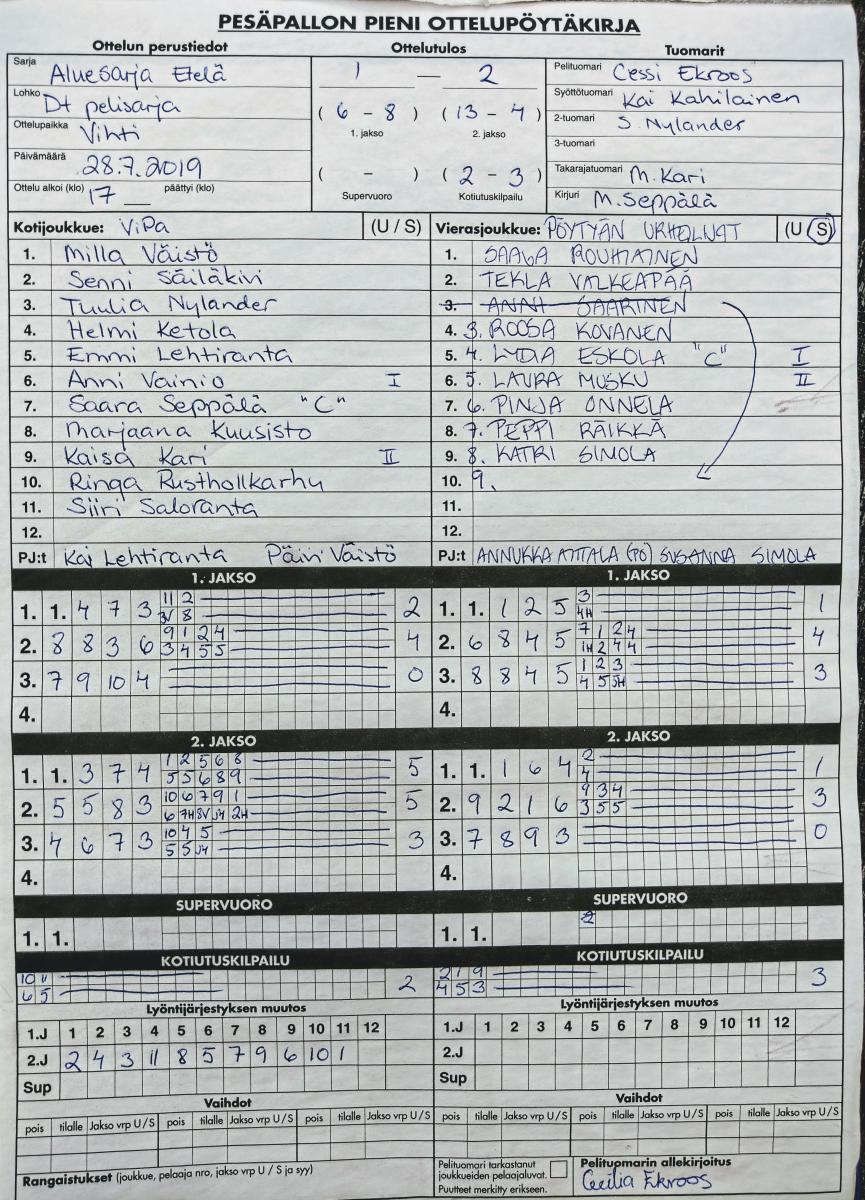 PESÄPALLON PIENI OTTELUPÖYTÄKIRJA
Ottelun perustiedot
Sarja Aluesarja Etelä
Lohko D+ pelisarja
Ottelupaikka Vihti
Päivämäärä 28.7.2019
Ottelu alkoi (klo) 17 __ päättyi (klo)
Ottelutulos
1 — 2
( 6 - 8 ) ( 13 - 4 )
1. jakso 2. jakso
( - ) ( 2 - 3 )
Supervuoro Kotiutuskilpailu
Tuomarit
Pelituomari Cessi Ekroos
Syöttötuomari Kai Kahilainen
2-tuomari S. Nylander
3-tuomari
Takarajatuomari M. Kari
Kirjuri M. Seppälä
Kotijoukkue: ViPa (U / S)
1. Milla Väistö
2. Senni Säiläkivi
3. Tuulia Nylander
4. Helmi Ketola
5. Emmi Lehtiranta
6. Anni Vainio I
7. Saara Seppälä "C"
8. Marjaana Kuusisto
9. Kaisa Kari II
10. Ringa Rusthollkarhu
11. Siiri Saloranta
12.
PJ:t Kai Lehtiranta Päivi Väistö
Vierasjoukkue: PÖYTYÄN URHEILIJAT (U / S)
1. SAAGA ROUHIAINEN
2. TEKLA VALKEAPÄÄ
3. ANNI SAARINEN
4. 3. ROOSA KOVANEN
5. 4. LYDIA ESKOLA "C" I
6. 5. LAURA MUSKU II
7. 6. PINJA ONNELA
8. 7. PEPPI RÄIKKÄ
9. 8. KATRI SIMOLA
10. 9.
11.
12.
PJ:t ANNUKKA ATTALA (PÖ) SUSANNA SIMOLA
1. JAKSO
1. 1. 4 7 3 11 2 2
3V 8
2. 8 8 3 6 9 1 2 4 4
3 4 5 5
3. 7 9 10 4 0
4.
1. JAKSO
1. 1. 1 2 5 3 1
4H
2. 6 8 4 5 7 1 2 4 4
1H 2 4 4
3. 8 8 4 5 1 2 3 3
4 5 5H
4.
2. JAKSO
1. 1. 3 7 4 1 2 5 6 8 5
5 5 6 8 9
2. 5 5 8 3 10 6 7 9 1 5
6 7H 8V J4 2H
3. 4 6 7 3 10 4 5 3
5 5 J4
4.
2. JAKSO
1. 1. 1 6 4 2 1
4
2. 9 2 1 6 9 3 4 3
3 5 5
3. 7 8 9 3 0
4.
SUPERVUORO
1. 1.
SUPERVUORO
2
1. 1.
KOTIUTUSKILPAILU
10 11 2
6 5
KOTIUTUSKILPAILU
2 1 9 3
4 5 3
Lyöntijärjestyksen muutos
1.J 1 2 3 4 5 6 7 8 9 10 11 12
2.J 2 4 3 11 8 5 7 9 6 10 1
Sup
Lyöntijärjestyksen muutos
1.J 1 2 3 4 5 6 7 8 9 10 11 12
2.J
Sup
Vaihdot
pois tilalle Jakso vrp U / S pois tilalle Jakso vrp U / S pois tilalle Jakso vrp U / S
Vaihdot
pois tilalle Jakso vrp U / S pois tilalle Jakso vrp U / S pois tilalle Jakso vrp U / S
Rangaistukset (joukkue, pelaaja nro, jakso vrp U / S ja syy)
Pelituomari tarkastanut
joukkueiden pelaajaluvat.
Puutteet merkitty erikseen.
Pelituomarin allekirjoitus
Cecilia Ekroos